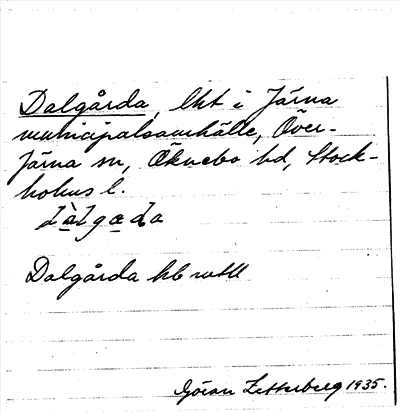 Dalgårda, lht i Järna
municipalsamhälle, Över-
järna sn, Öknebo hd, Stock-
holms l.
Dalgårda
Göran Zetterberg 1935.